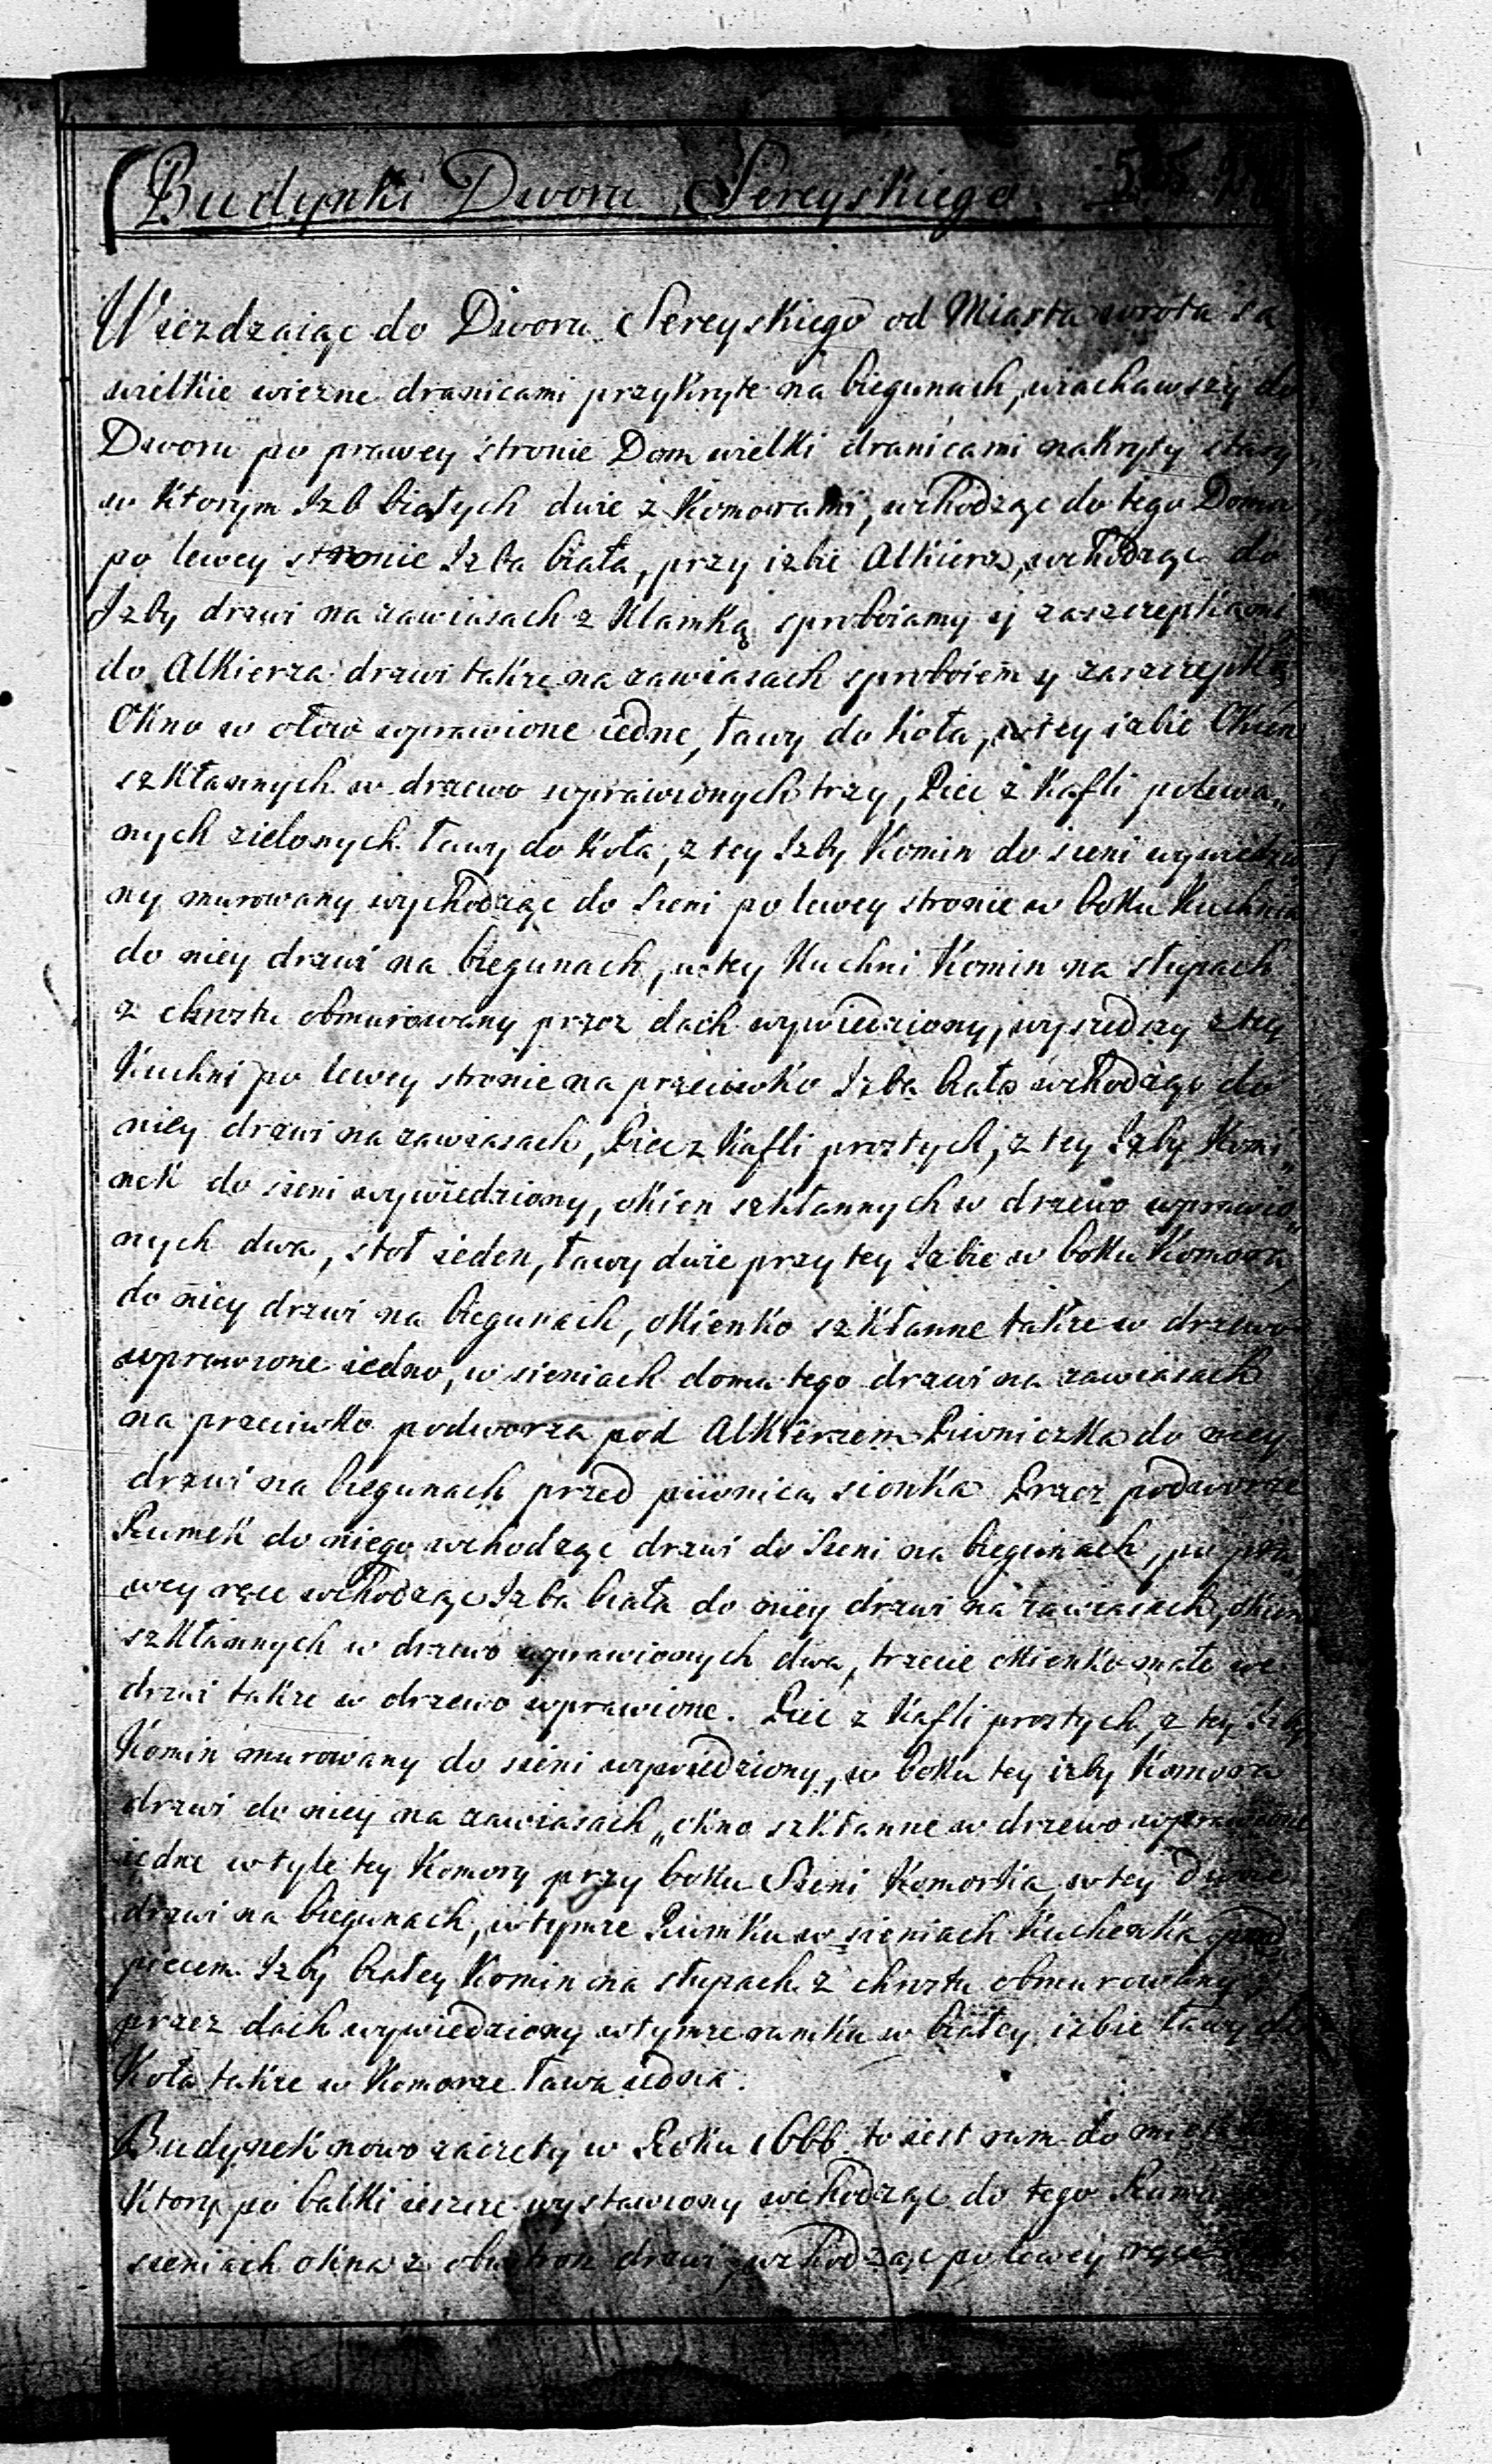 Budynki Dworu Sereyskiego.
Wieżdzaiąc do Dworu Sereyskiego od Miasta wrota są
wielkie wiezne dranicami przykryte na biegunach, wiachawszy do
Dworu po prawey stronie Dom wielki dranicami nakryty stary
w ktorym Izb białych dwie z Komorami, wchodząc do tego Domu
po lewey stronie Izba biała, przy izbie Alkierz, wchodząc do
Izby drzwi na zawiasach z klamką sproboiamy y zaszczepkami
do Alkierza drzwi takze na zawiasach sproboiem y zaszczepką
Okno w ołow wprawione iedne, ławy do koła, w tey izbie Okien
szkłannych w drzewo wprawionych trzy, Piec z kafli polewa„
nych zielonych ławy do koła, z tey Izby Komin do sieni wywiedzio
ny murowany wychodząc do Sieni po lewey stronie w boku Kuchnia
do niey drzwi na biegunach, w tey Kuchni Komin na słupach
z chrostu obmurowany przez dach wywiedziony, wyszedszy z tey
Kuchni po lewey stronie na przeciwko Izba biała wchodząc do
niey drzwi na zawiasach, Piec z kafli prostych, z tey Izby Komi„
nek do sieni wywiedziony, okien szkłannych w drzewo wprawio„
nych dwa, stoł ieden, ławy dwie przy tey Izbie w boku Komora,
do niey drzwi na biegunach, okienko szkłanne takze w drzewo
wprawione iedno, w sieniach domu tego drzwi na zawiasach
na przeciwko podworza pod Alkierzem Piwniczka do niey
drzwi na biegunach przed piwnicą sionka Przez podworze
Rumek do niego wchodząc drzwi do Sieni na biegunach, po pra
wey ręce wchodząc Izba biała do niey drzwi na zawiasach, okien
szkłannych w drzewo wprawionych dwa, trzecie okienko małe we
drzwi takze w drzewo wprawione. Piec z kafli prostych, z tey Izby
Komin murowany do sieni wywiedziony, w boku tey izby Komora
drzwi do niey na zawiasach „okno szkłanne w drzewo wprawione
iedne w tyle tey Komory przy boku Sieni Komorka, w tey dwoie
drzwi na biegunach, w tymze Rumku w sieniach Kuchenka pod
piecem Izby białey Komin na słupach z chrostu obmurowany
przez dach wywiedziony w tymze rumku w białey izbie ławy do
Koła takze w Komorze ława iedna.
Budynek nowo zaczęty w Roku 1666 to iest rum do
Ktory po balki ieszcze wystawiony wchodząc do tego
sieniach okna z obu stron drzwi, wchodząc po lewey ręce